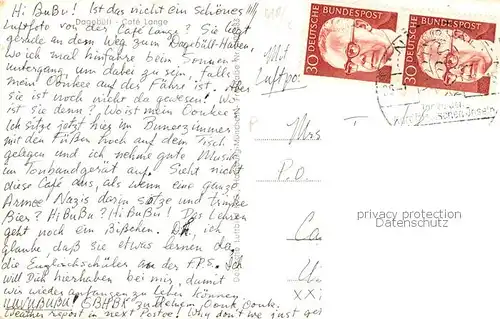 Dagebüll - Café Lange
Hi BuBu! Ist das nicht ein Schönes
Luftfoto von der Café Lange? Sie liegt
gerade an dem Weg zum Dagebüll-Hafen,
wo ich mal hinfahre beim Sonnen
untergang, um dabei zu sein, falls
mein Oonkee auf der Fähre ist. Aber
sie ist noch nicht da gewesen! Wo
ist sie denn? Wo ist mein Oonkee
Ich sitze jetzt hier im Zimmer
mit den Füßen hoch auf dem Tisch
gelegen und ich nehme gute Musik
im Tonbandgerät auf. Sieht nicht
diese Café aus, als wenn eine ganze
Armee Nazis darin sitze und trinke
Bier? HiBuBu? HiBuBu! Das Lehren
geht noch ein Bißchen. Oh, ich
glaube, daß sie etwas lernen da,
die Englischschüler an der P.P.S. Ich
will Dich hier haben bei mir, damit
wir wieder anfangen zu leben können
Oonk Oonk.
Weather report in next Postoe! Why don't we just get
Mit
Luftpost
30
DEUTSCHE BUNDESPOST
30
DEUTSCHE BUNDESPOST
Mrs
P.O
privacy protection
Datenschutz